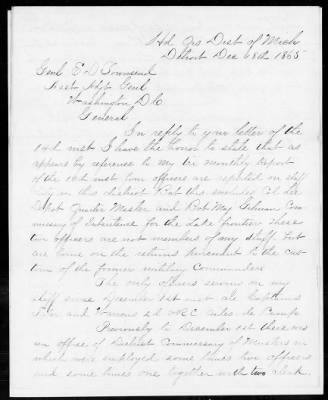 Hd Qrs Dist of Mich
Detroit Dec 18th 1865
Genl E D Townsend
Asst Adjt Genl
Washington D.C
General
In reply to your letter of the
14th inst I have the honor to state that as
appears by reference to my tri monthly Report
of the 10th inst four officers are reported on staff
duty in this district But this includes Col Lee
Depot Quarter Master and Bvt Maj Gilman Com
missary of Subsistence for the Lake frontier These
two officers are not members of my staff but
are borne on the returns pursuant to the cus
tom of the former military Commanders
The only officers serving on my
staff since December 1st inst are Captains
and
Previously to December 1st there was
an office of District Commissary of Musters in
which were employed some times two officers
and some times one together with two clerks